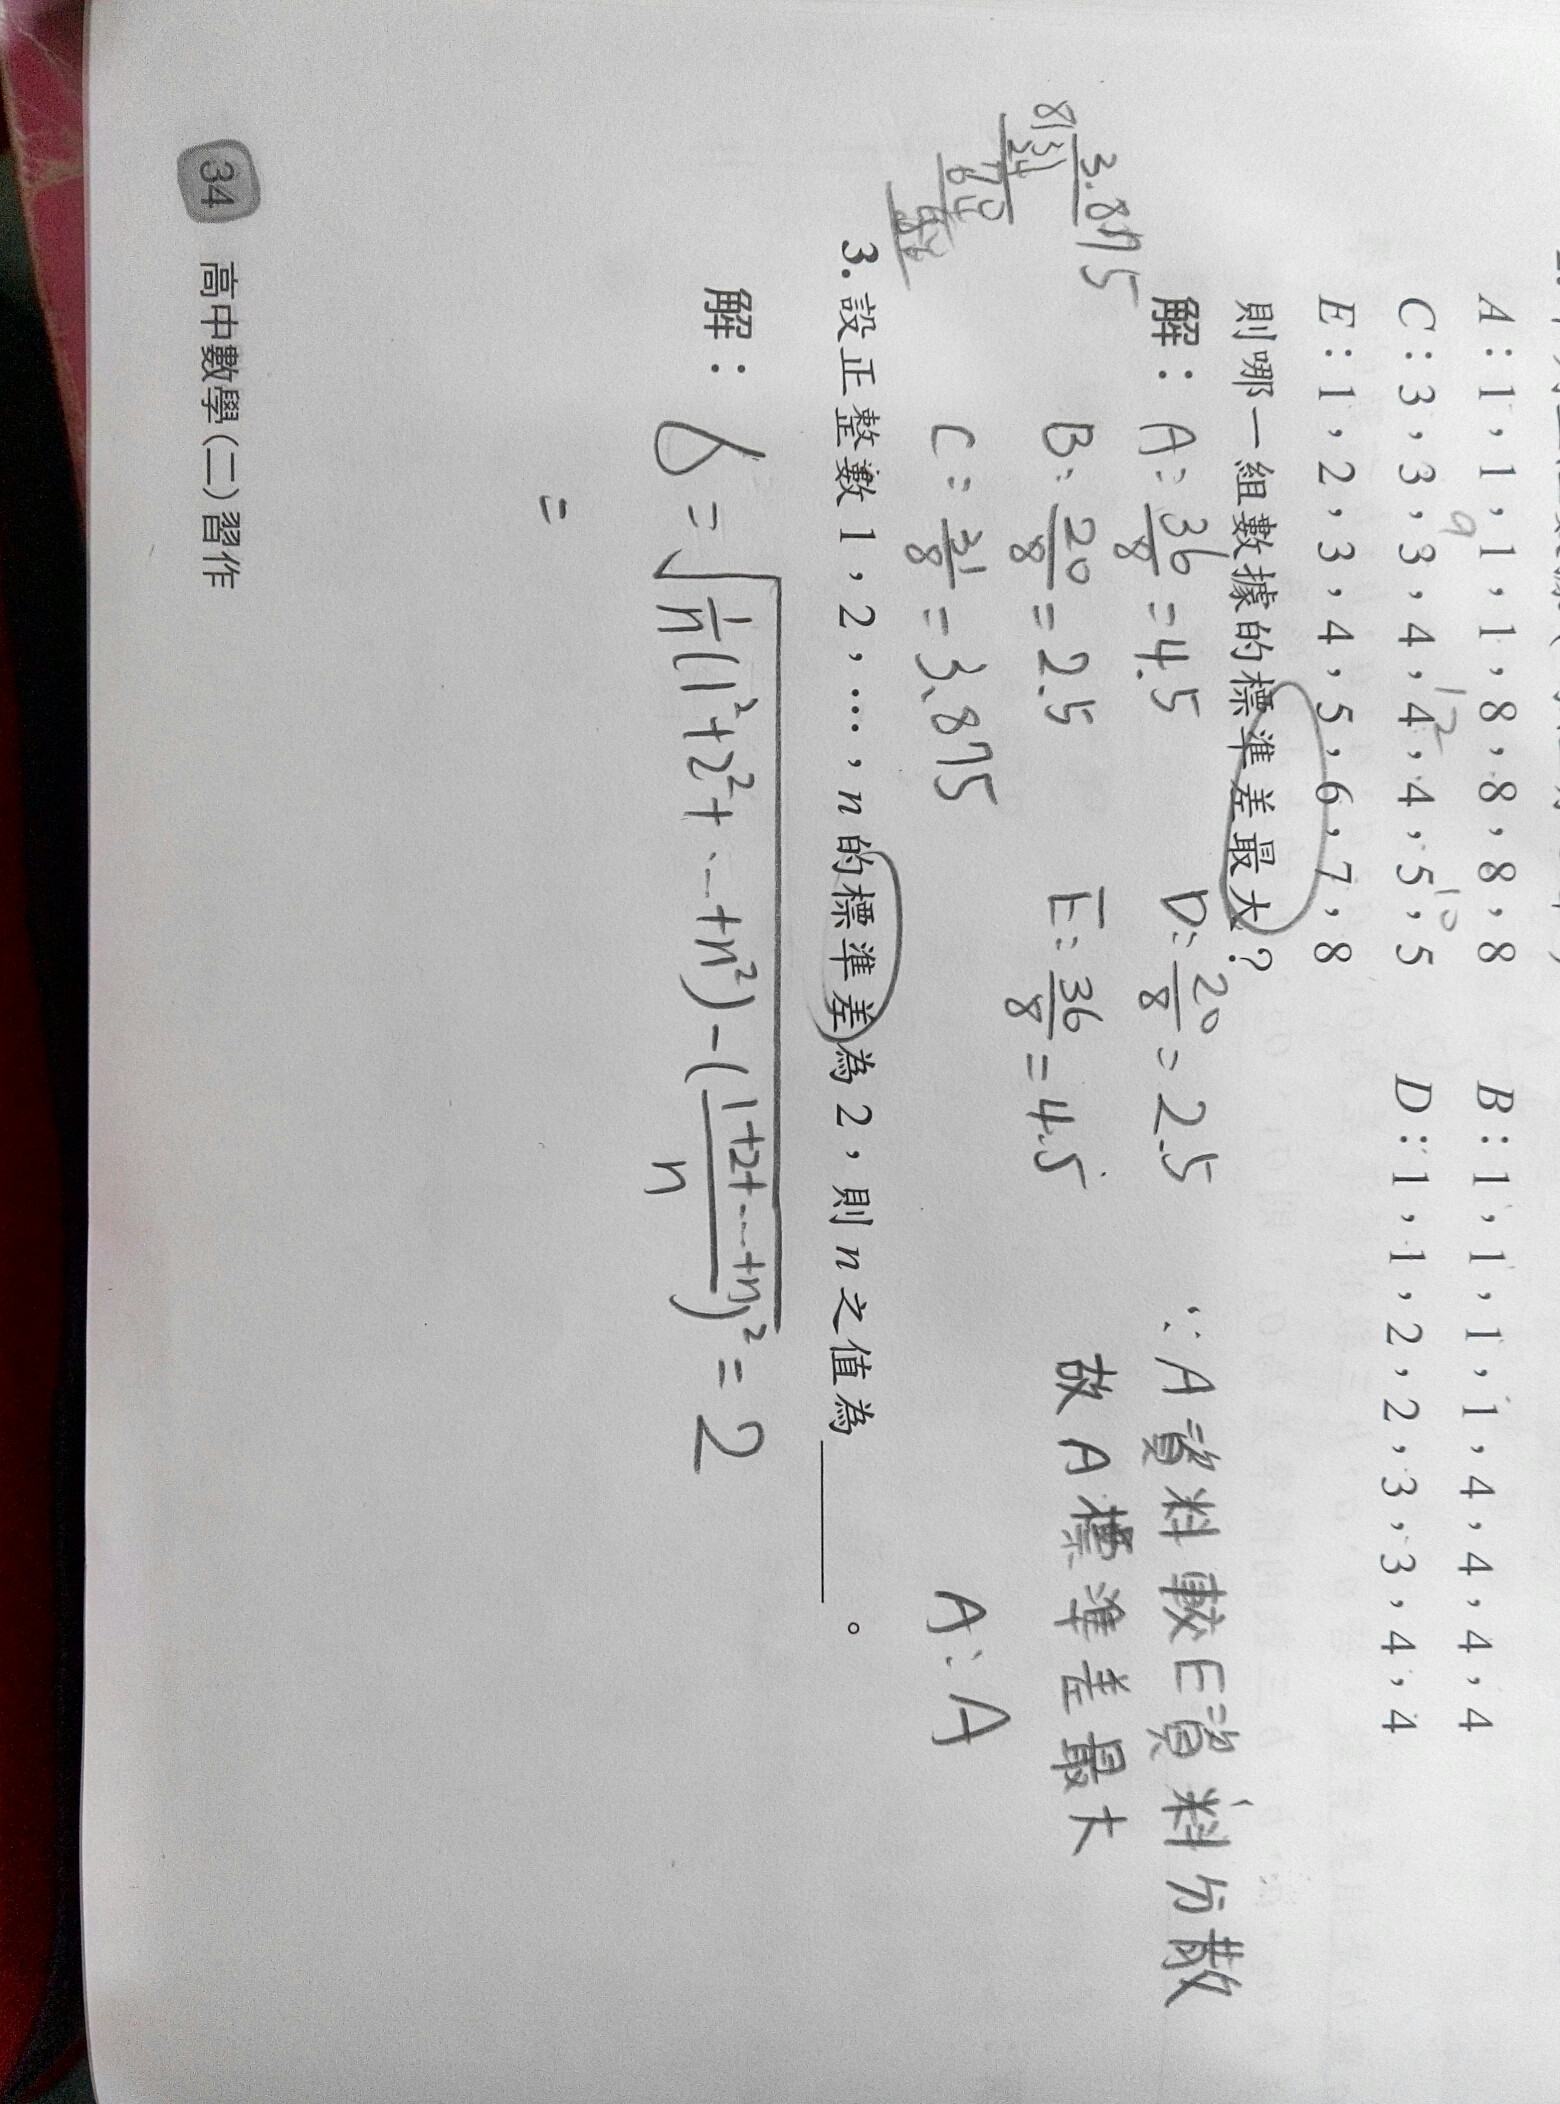 A：1，1，1，1，8，8，8，8
B：1，1，1，1，4，4，4，4
9
12
10
C：3，3，3，4，4，4，5，5
D：1，1，2，2，3，3，4，4
E：1，2，3，4，5，6，7，8
則哪一組數據的標準差最大？
解：
A：36/8 = 4.5
D：20/8 = 2.5
∵A資料較E資料分散
B：20/8 = 2.5
E：36/8 = 4.5
故A標準差最大
C：31/8 = 3.875
A：A
3.875
8
31
24
70
64
3. 設正整數1，2，…，n的標準差為2，則n之值為＿＿＿。
解：
6 = √(1/n(1²+2²+…+n²)-((1+2+…+n)/n)²) = 2
=
34 高中數學(二)習作